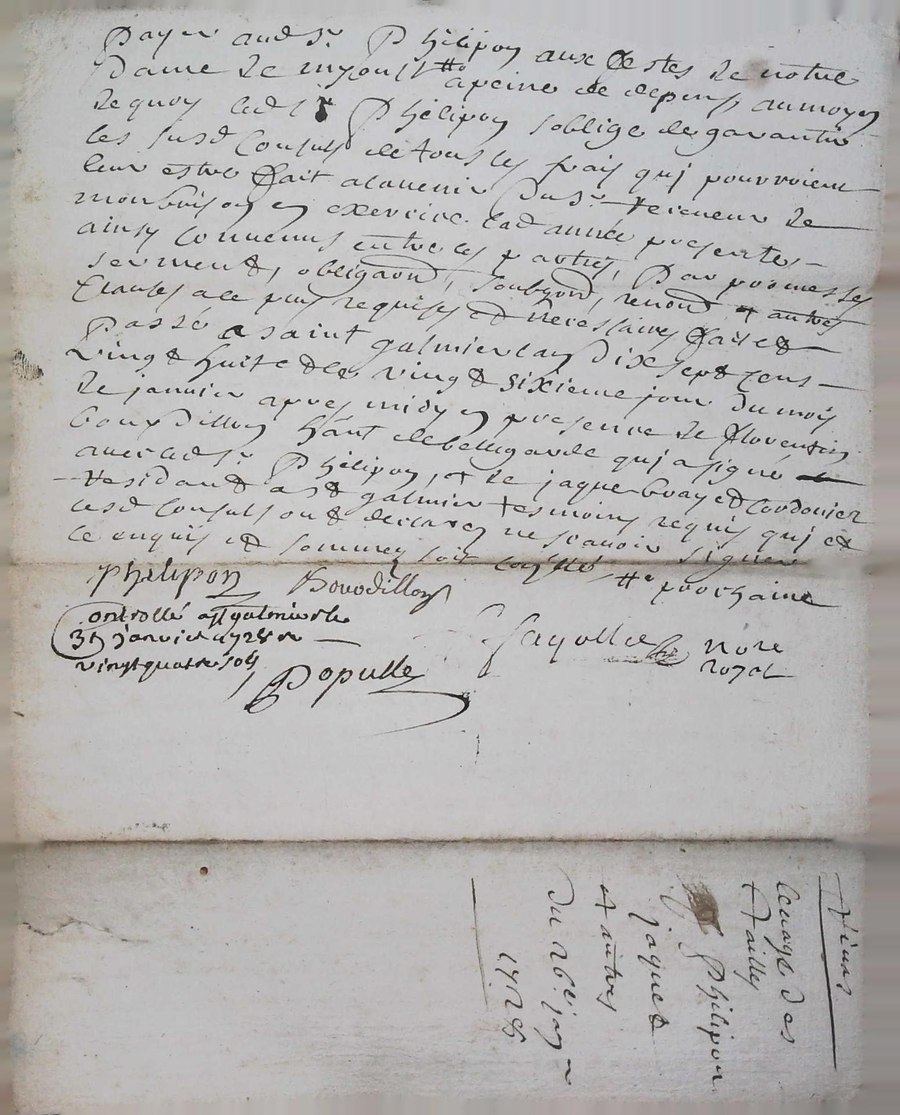 payer aud sr Philipon aux festes de notre
Dame de my aoust # a peine de depens, au moyen
de quoy led sr Philipon s'oblige de garantir
les susd Consuls de tous les frais quj pourroient
leur estre fait a lavenir Dud sr Receveur de
monbrison en exercice lad année presente
ainsy Convenus entre les parties, Par promesses
serment, obligaon, soubzon, renon & autres
Clauses a ce plus requises et necessaires fait et
Passé a saint galmier lan Dix sept cens
vingt huit et le vingt sixieme jour Du mois
de janvier apres midy en presence de florentin
bourdillon hant de bellegarde quj a signé
avec led sr Philipon, & de jaque et Cordonier
Residant a st galmier tesmoins requis quj et
lesd Consuls ont declarez ne scavoir signer
de enquis et sommez # prochaine
Philipon Bourdillon
Controllé a st galmier le
31 janvier 1728 r
vingt quatre sols
Fayolle nore
royal
Populle
levage des
tailles
Philipon
jaque
& autres
Du 26e janr
1728